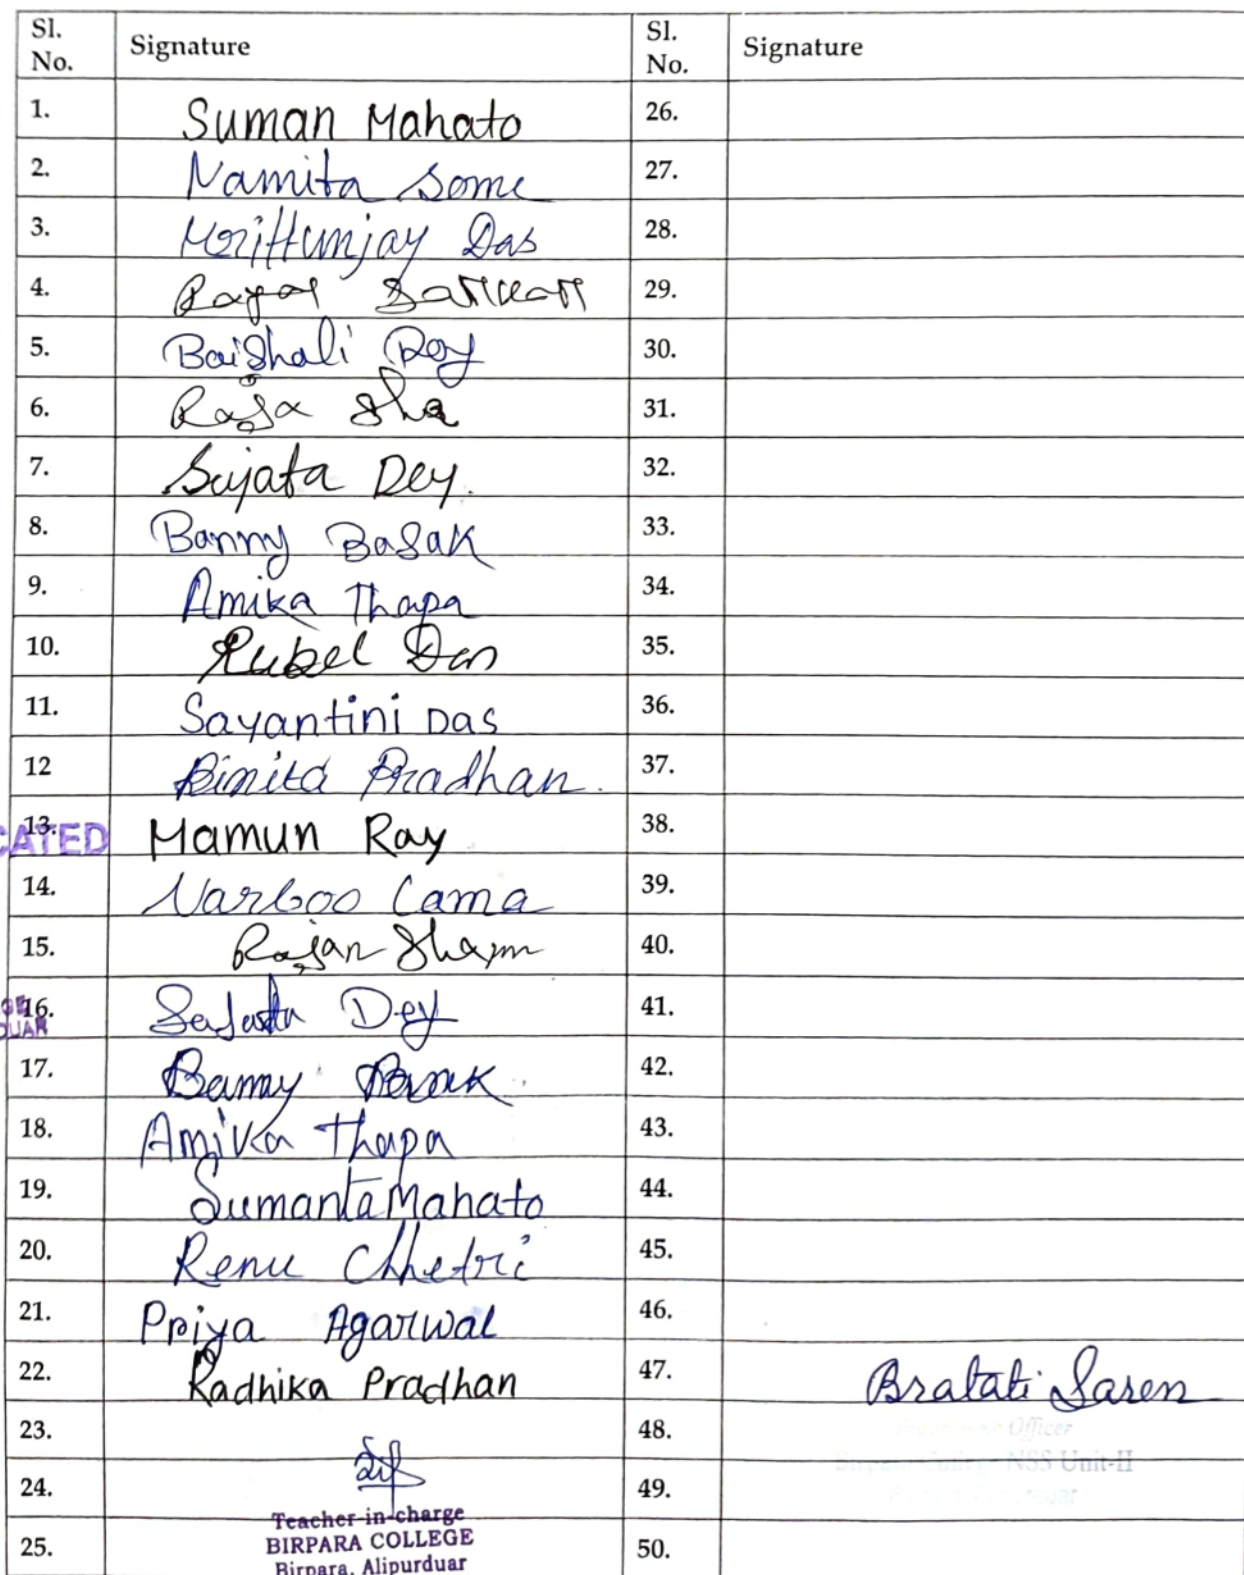 Sl. No. Signature Sl. No. Signature
1. Suman Mahato 26.
2. Namita Some 27.
3. Mrittunjay Das 28.
4. Sarkar 29.
5. Baishali Roy 30.
6. Raja Sha 31.
7. Sujata Dey. 32.
8. Banny Basak 33.
9. Amika Thapa 34.
10. Rubel Das 35.
11. Sayantini Das 36.
12 Binita Pradhan. 37.
13. Mamun Ray 38.
CATED
14. Narboo Lama 39.
15. Rajan 40.
16. Dey 41.
DUAR
17. Banny 42.
18. Amika Thapa 43.
19. Sumanta Mahato 44.
20. Renu Chhetri 45.
21. Priya Agarwal 46.
22. Radhika Pradhan 47. Bratati Saren
23. 48.
Officer
NSS Unit-II
24. 49.
Teacher-in-charge
25. BIRPARA COLLEGE 50.
Birpara, Alipurduar